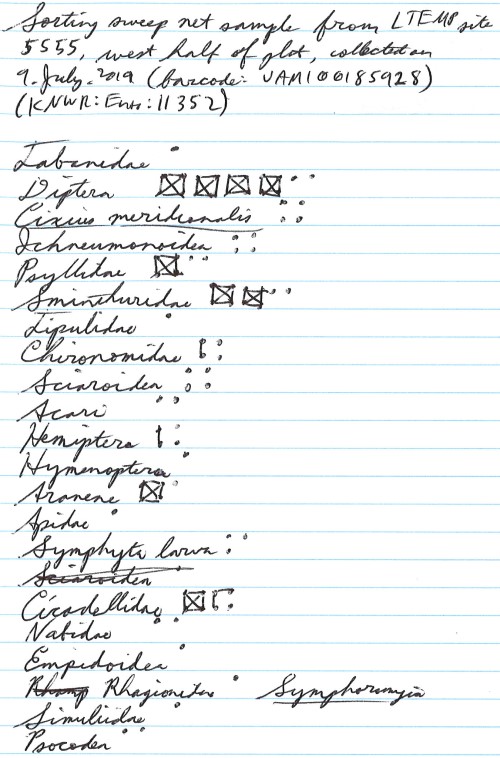 Sorting sweep net sample from LTEMP site
5555, west half of plot, collected on
9.July.2019 (barcode: UAM100185928)
(KNWR:Ento:11352)
Tabanidae
Diptera
Cixius meridionalis
Ichneumonoidea
Psyllidae
Sminthuridae
Tipulidae
Chironomidae
Sciaroidea
Acari
Hemiptera
Hymenoptera
Araneae
Apidae
Symphyta larva
Sciaroidea
Cicadellidae
Nabidae
Empidoidea
Rhagionidae Symphoromyia
Simuliidae
Psocodea